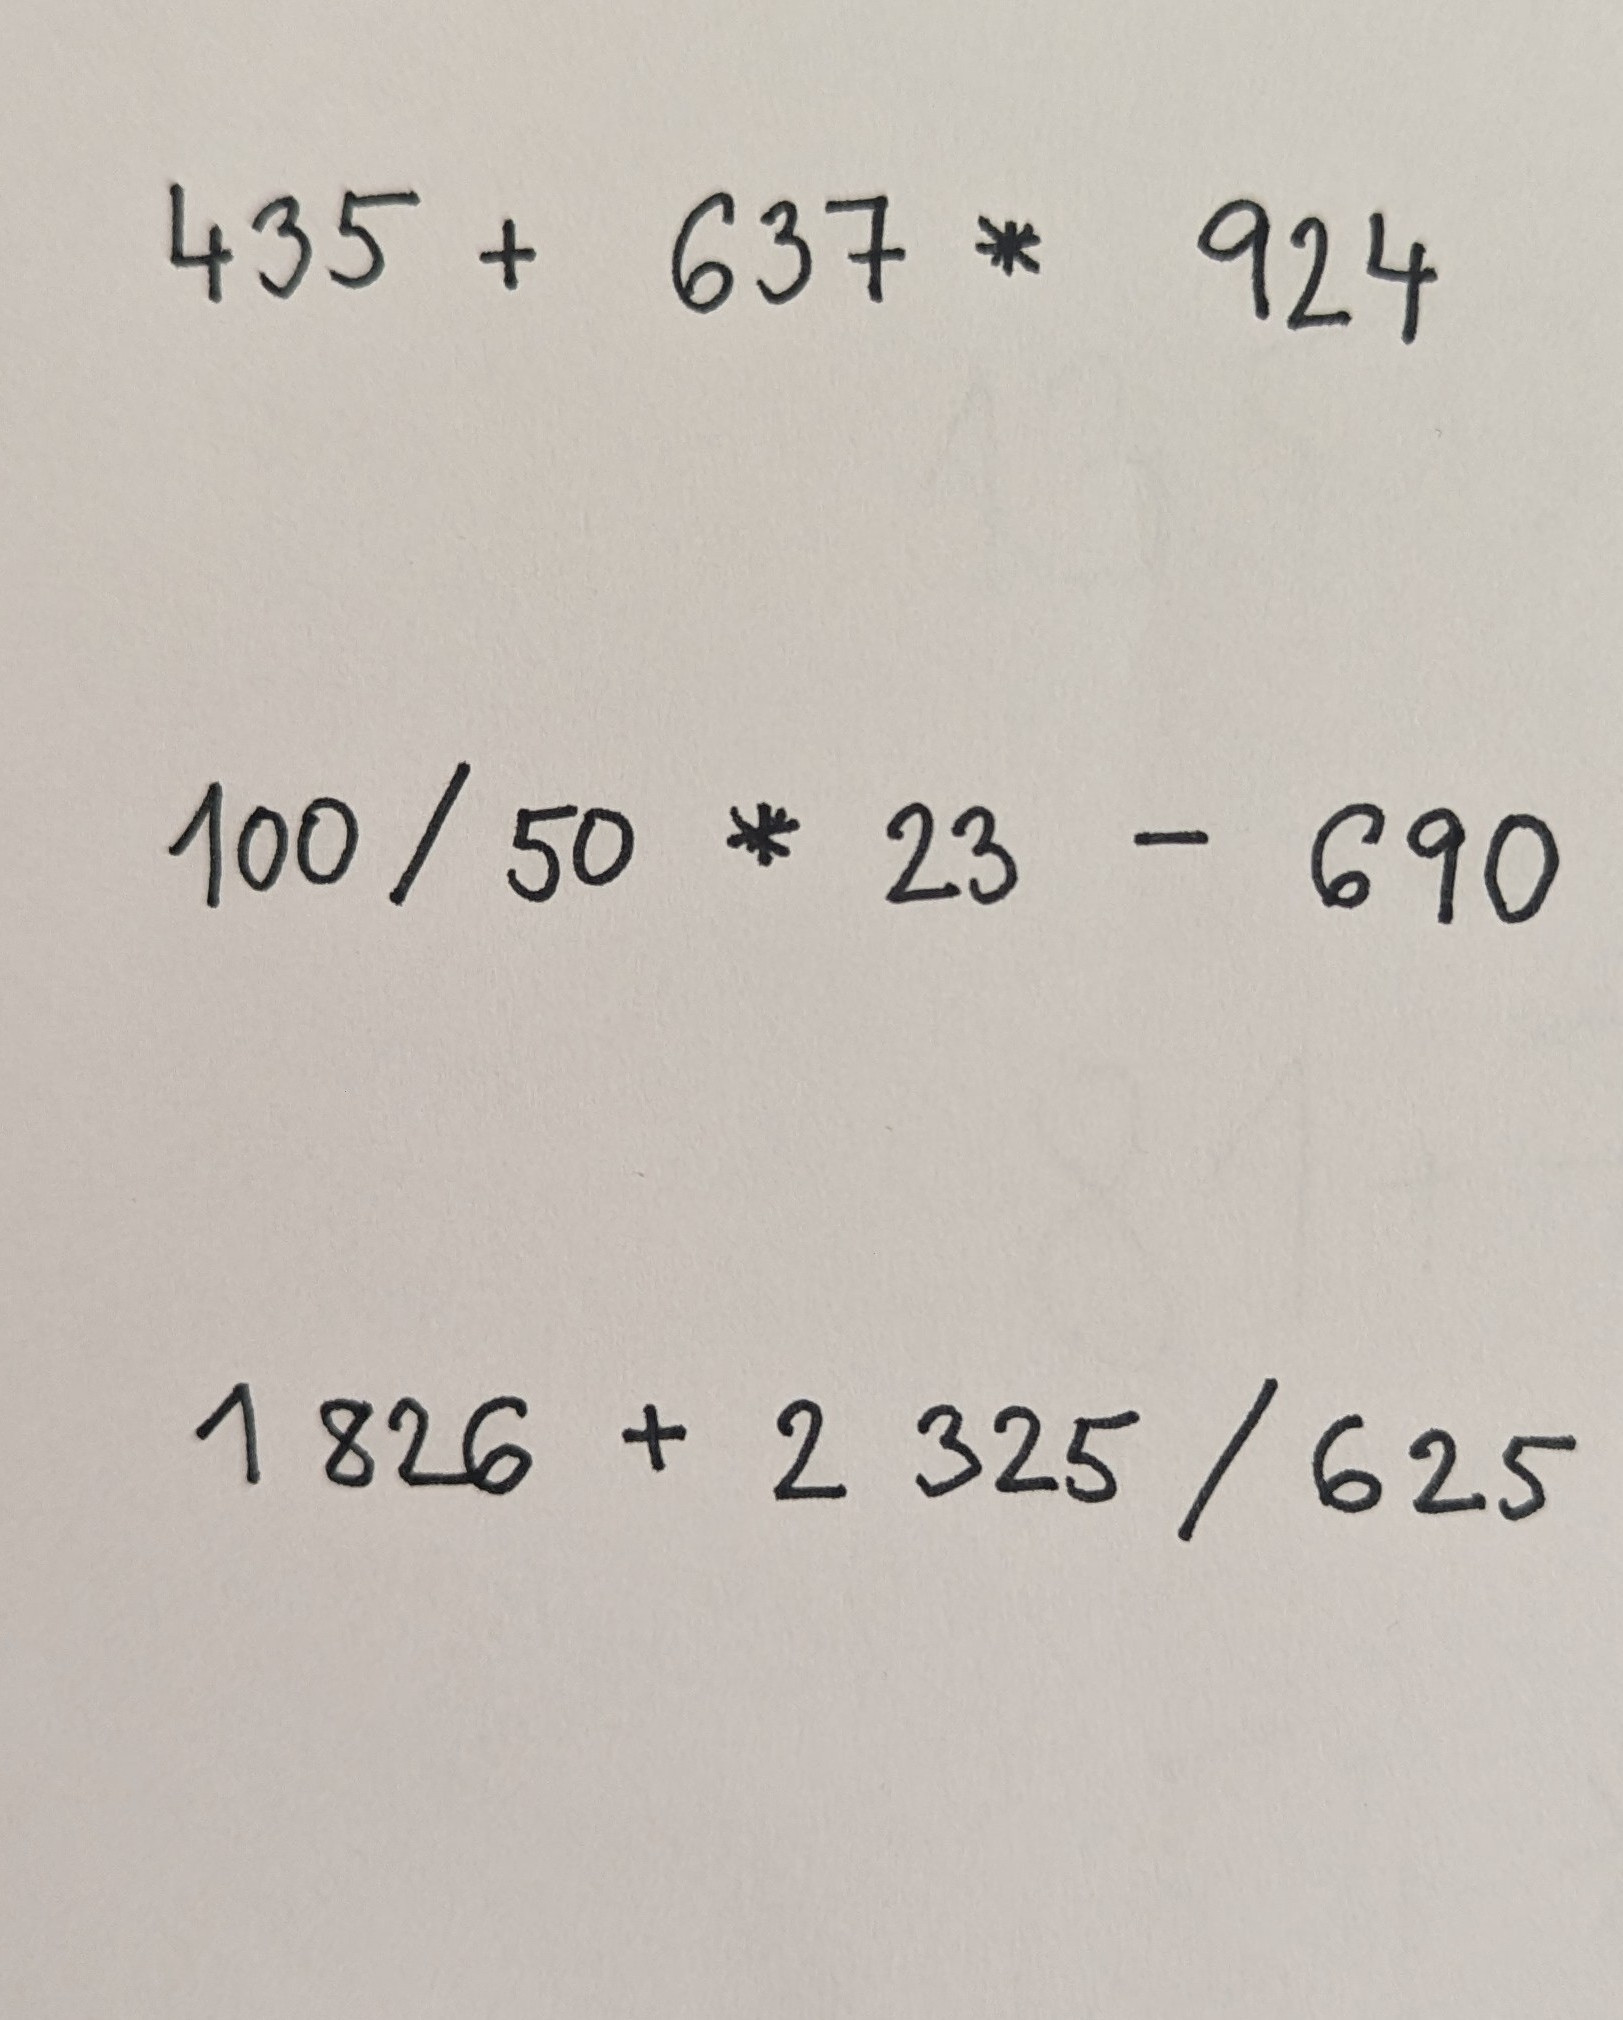 435 + 637 * 924
100 / 50 * 23 - 690
1 826 + 2 325 / 625